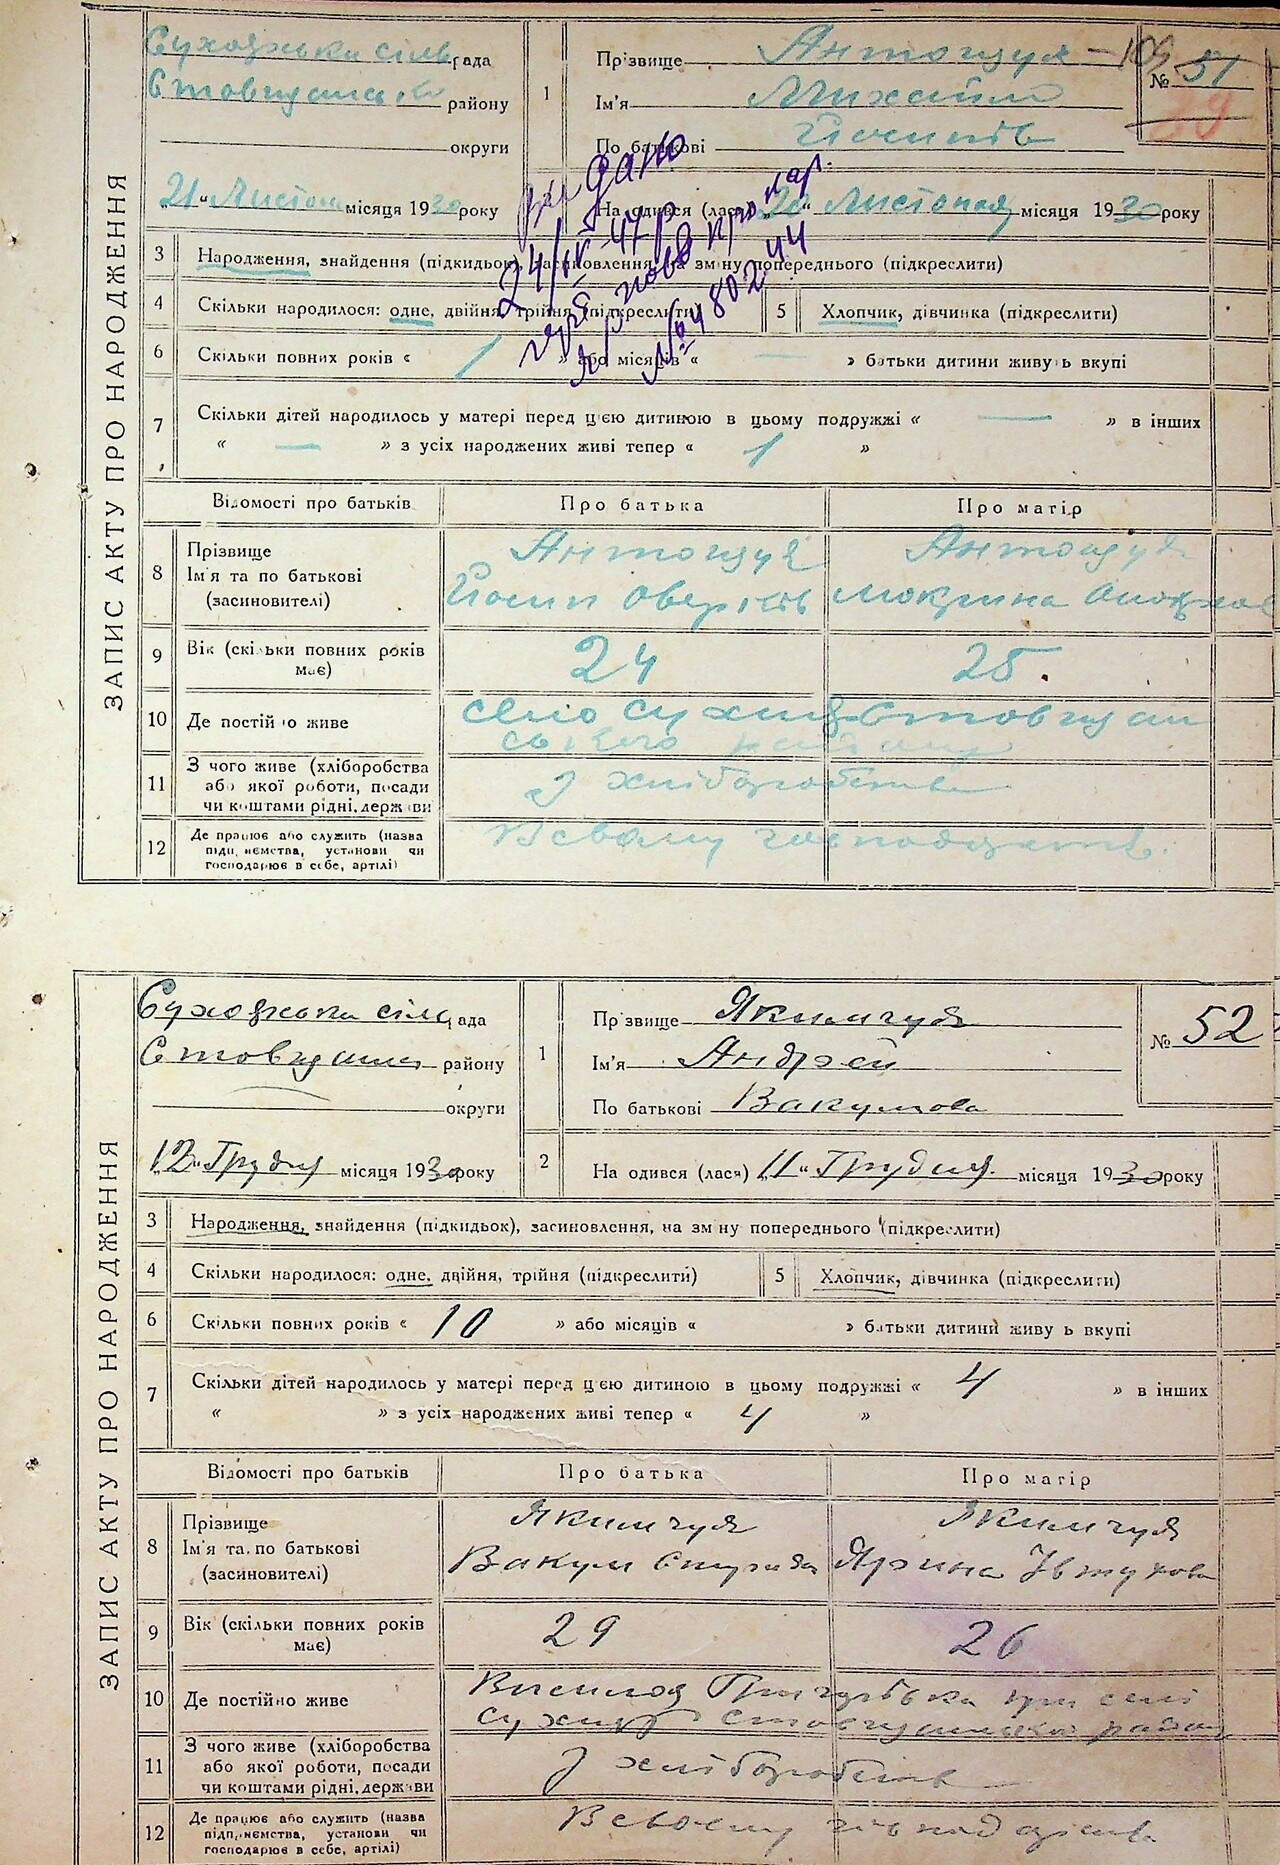 ЗАПИС АКТУ ПРО НАРОДЖЕННЯ
Суходзька сільрада
району
округи
1
Прізвище Антощук
Ім'я Михайло
По батькові Йосипів
№ 51
„21“ Листопа місяця 1930 року
На одився (лась) „20“ Листопада місяця 1930 року
дано
24/IV-47р
№ 480244
3 Народження, знайдення (підкидьок), засиновлення, на зміну попереднього (підкреслити)
4 Скільки народилося: одне, двійня, трійня (підкреслити)
5 Хлопчик, дівчинка (підкреслити)
6 Скільки повних років « 1 » або місяців « — » батьки дитини живуть вкупі
7 Скільки дітей народилось у матері перед цією дитиною в цьому подружжі « — » в інших
« — » з усіх народжених живі тепер « 1 »
Відомості про батьків
Про батька
Про матір
8 Прізвище
Ім'я та по батькові
(засиновителі)
Антощук
Йосип Оверків
Антощук
Мокрина
9 Вік (скільки повних років має)
24
25
10 Де постійно живе
село
11 З чого живе (хліборобства
або якої роботи, посади
чи коштами рідні, держави
З хліборобства
12 Де працює або служить (назва
підприємства, установи чи
господарює в себе, артілі)
В своєму господарстві
ЗАПИС АКТУ ПРО НАРОДЖЕННЯ
Суходзька сільрада
району
округи
1
Прізвище Якимчук
Ім'я Андрей
По батькові Вакулова
№ 52
„12“ Грудня місяця 1930 року
2 На одився (лася) „11“ Грудня місяця 1930 року
3 Народження, знайдення (підкидьок), засиновлення, на зміну попереднього (підкреслити)
4 Скільки народилося: одне, двійня, трійня (підкреслити)
5 Хлопчик, дівчинка (підкреслити)
6 Скільки повних років « 10 » або місяців « » батьки дитини живуть вкупі
7 Скільки дітей народилось у матері перед цією дитиною в цьому подружжі « 4 » в інших
« » з усіх народжених живі тепер « 4 »
Відомості про батьків
Про батька
Про матір
8 Прізвище
Ім'я та по батькові
(засиновителі)
Якимчук
Вакул
Якимчук
Ярина Івтухова
9 Вік (скільки повних років має)
29
26
10 Де постійно живе
при селі
11 З чого живе (хліборобства
або якої роботи, посади
чи коштами рідні, держави
З хліборобства
12 Де працює або служить (назва
підприємства, установи чи
господарює в себе, артілі)
В своєму господарстві